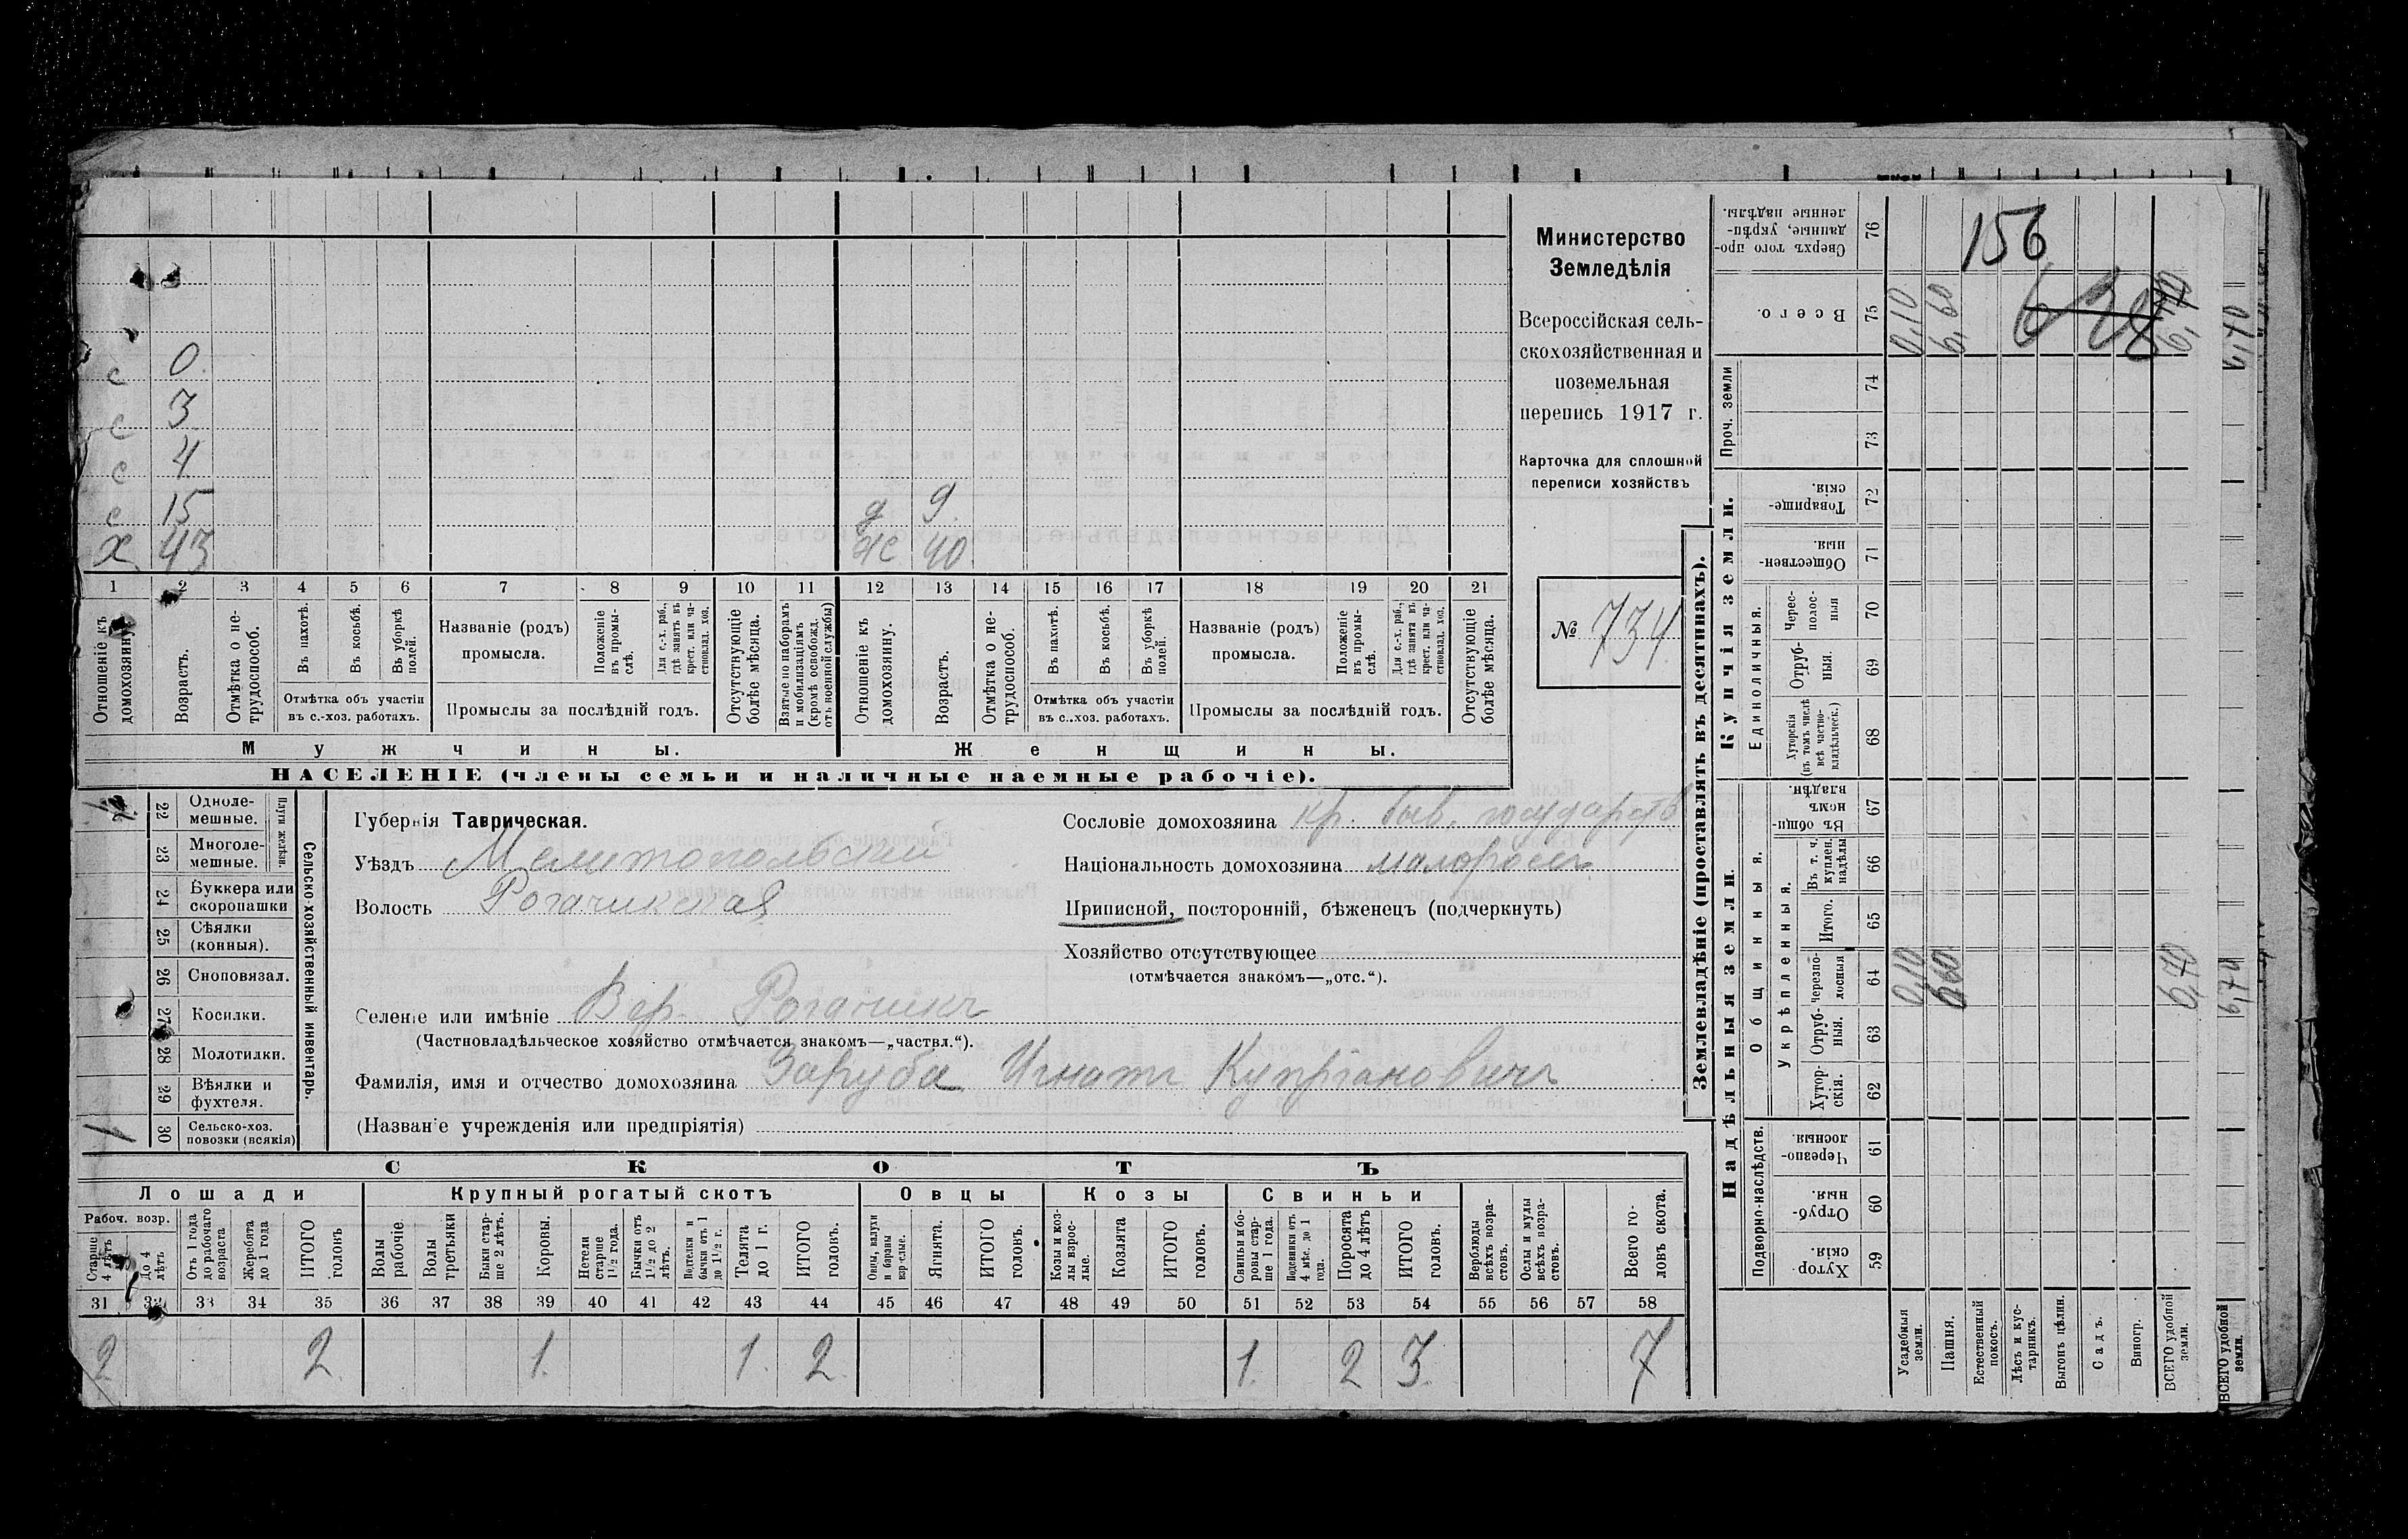 156
6,70
Министерство
Земледѣлія
Всероссійская сель-
скохозяйственная и
поземельная
перепись 1917 г.
Карточка для сплошной
переписи хозяйствъ
№ 734
с 0
с 3
с 4
с 15 д 9
х 43 ж 40
1 2 3 4 5 6 7 8 9 10 11 12 13 14 15 16 17 18 19 20 21
Отношеніе къ домохозяину.
Возрастъ.
Отмѣтка о не-трудоспособ.
Въ пахотѣ.
Въ косьбѣ.
Въ уборкѣ полей.
Отмѣтка объ участіи
въ с.-хоз. работахъ.
Названіе (родъ)
промысла.
Положеніе въ промы-слѣ.
Для с.-х. раб., гдѣ занятъ въ крест. или ча-стновлад. хоз.
Промыслы за послѣдній годъ.
Отсутствующіе болѣе мѣсяца.
Взятые по наборамъ и мобилизаціямъ (кромѣ освобожд. отъ военной службы)
Отношеніе къ домохозяину.
Возрастъ.
Отмѣтка о не-трудоспособ.
Въ пахотѣ.
Въ косьбѣ.
Въ уборкѣ полей.
Отмѣтка объ участіи
въ с.-хоз. работахъ.
Названіе (родъ)
промысла.
Положеніе въ промы-слѣ.
Для с.-х. раб., гдѣ занята въ крест. или ча-стновлад. хоз.
Промыслы за послѣдній годъ.
Отсутствующіе болѣе мѣсяца.
Мужчины.
Женщины.
НАСЕЛЕНІЕ (члены семьи и наличные наемные рабочіе).
Сельско-хозяйственный инвентарь.
Плуги желѣзн.
22 Одноле-мешные.
23 Многоле-мешные.
24 Буккера или скоропашки
25 Сѣялки (конныя).
26 Сноповязал.
27 Косилки.
28 Молотилки.
29 Вѣялки и фухтеля.
1 30 Сельско-хоз. повозки (всякія)
Губернія Таврическая.
Уѣздъ Мелитопольскій
Волость Рогачикская
Сословіе домохозяина кр. быв. государств
Національность домохозяина малороссъ
Приписной, посторонній, бѣженецъ (подчеркнуть)
Хозяйство отсутствующее
(отмѣчается знакомъ—„отс.“).
Селеніе или имѣніе Вер. Рогачикъ
(Частновладѣльческое хозяйство отмѣчается знакомъ—„частвл.“).
Фамилія, имя и отчество домохозяина Заруба Игнатъ Купріановичъ
(Названіе учрежденія или предпріятія)
СКОТЪ
Лошади
Крупный рогатый скотъ
Овцы
Козы
Свиньи
Рабоч. возр.
Старше 4 лѣтъ
До 4 лѣтъ
Отъ 1 года до рабочаго возраста
Жеребята до 1 года
ИТОГО головъ
Волы рабочіе.
Волы третьяки
Быки стар-ше 2 лѣтъ.
Коровы.
Нетели старше 1 1/2 года.
Бычки отъ 1 1/2 до 2 лѣтъ.
Подтелки и бычки отъ 1 до 1 1/2 г.
Телята до 1 г.
ИТОГО головъ.
Овцы, валухи и бараны взрослые.
Ягнята.
ИТОГО головъ.
Козы и коз-лы взрос-лые.
Козлята
ИТОГО головъ.
Свиньи и бо-ровы стар-ше 1 года.
Подсвинки отъ 4 мѣс. до 1 года.
Поросята до 4 лѣтъ
ИТОГО головъ.
Верблюды всѣхъ возра-стовъ.
Ослы и мулы всѣхъ возра-стовъ.
Всего го-ловъ скота.
31 32 33 34 35 36 37 38 39 40 41 42 43 44 45 46 47 48 49 50 51 52 53 54 55 56 57 58
2 2 1 1 2 1 2 3 7
Землевладѣніе (проставлять въ десятинахъ).
Сверхъ того про-данные, укрѣп-ленные надѣлы. 76
Всего. 75 0,10 6,60 6,70
Проч. земли 74
73
Купчія земли.
Товарище-скія. 72
Обществен-ныя. 71
Единоличныя.
Черес-полос-ныя 70
Отруб-ныя. 69
Хуторскія (въ томъ числѣ всѣ частно-владѣльческ.) 68
Надѣльныя земли.
Общинныя.
Въ общи-номъ владѣн. 67
Укрѣпленныя.
Въ т. ч. куплен. надѣлы 66
Итого. 65
Черезпо-лосныя 64 0,10 6,60 6,70 6,70
Отруб-ныя. 63
Хутор-скія. 62
Подворно-наслѣдств.
Черезпо-лосныя. 61
Отруб-ныя. 60
Хутор-скія. 59
Усадебныя земли.
Пашня.
Естественный покосъ.
Лѣсъ и кус-тарникъ.
Выгонъ цѣлин.
Садъ.
Виногр.
ВСЕГО удобной земли.
ВСЕГО удобной земли.